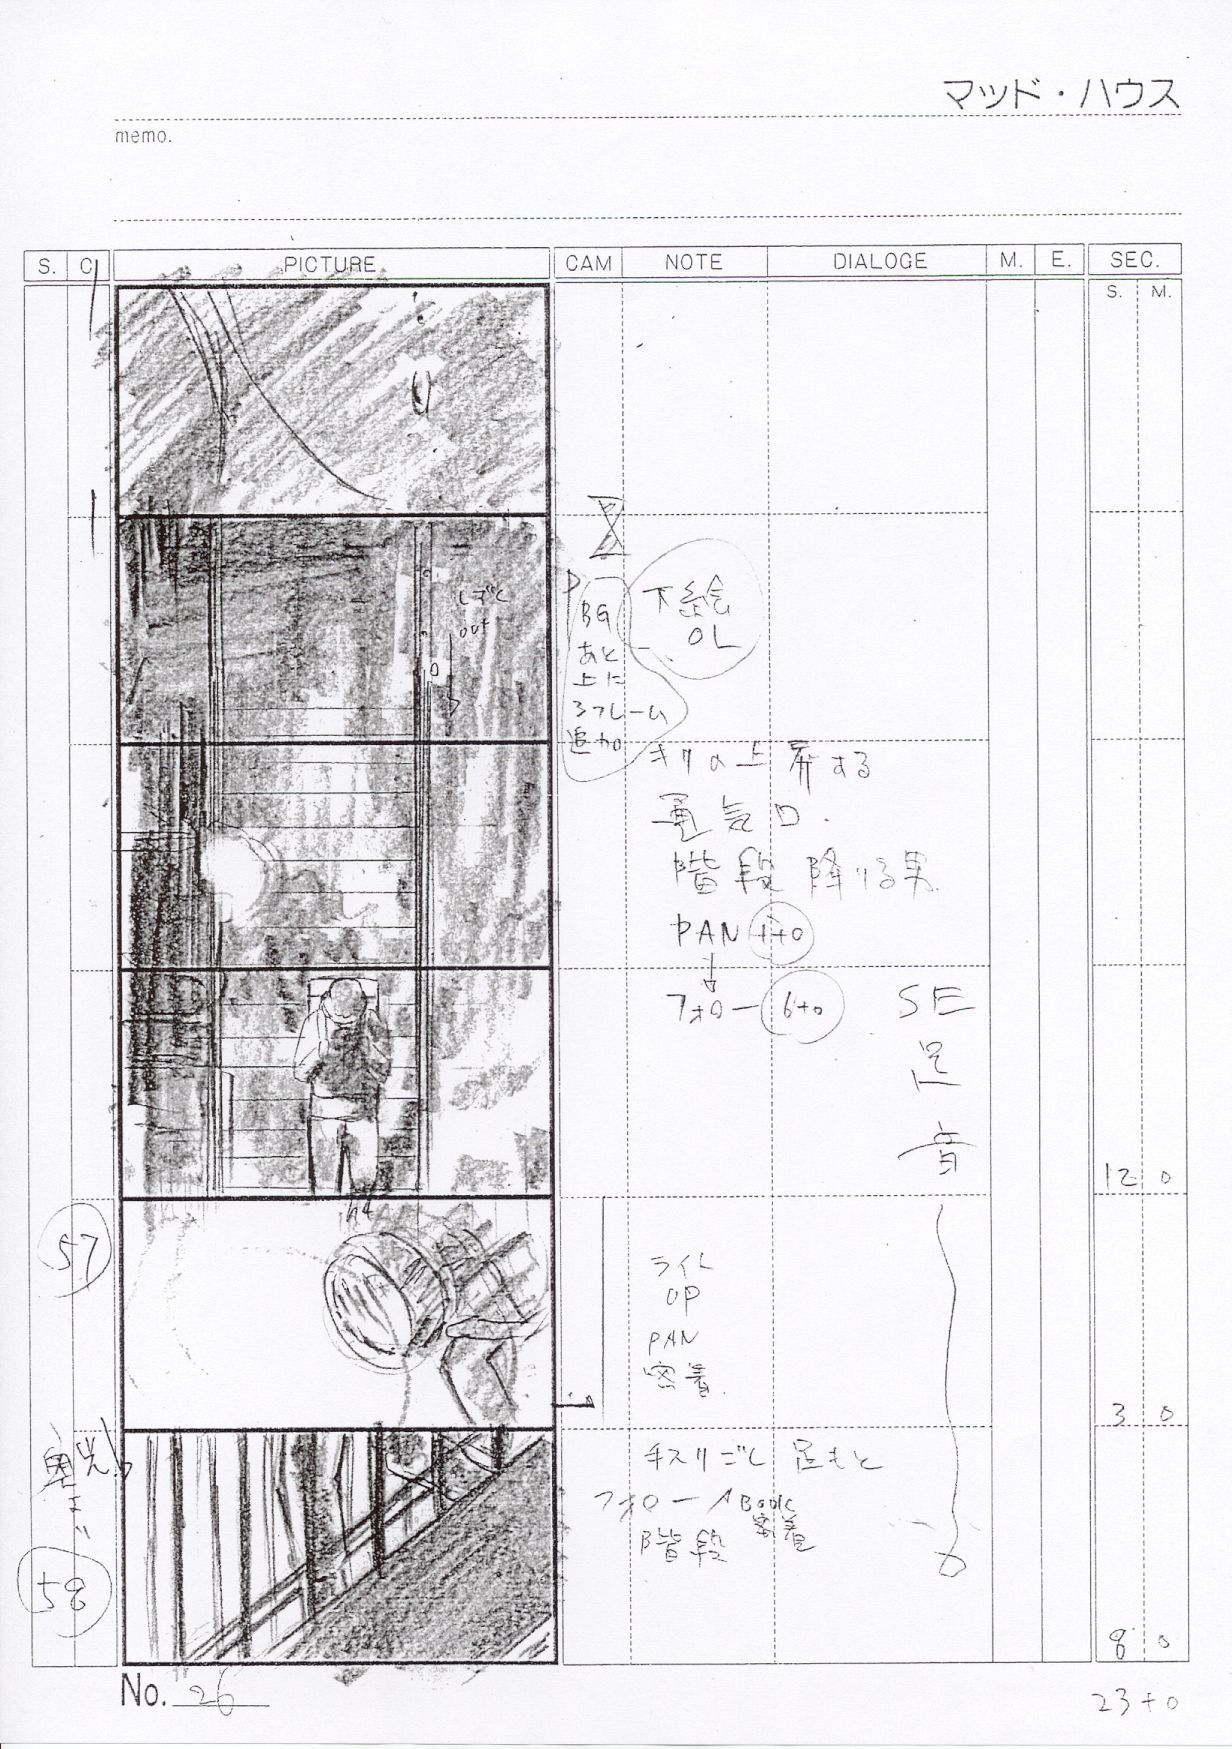 マッド・ハウス
memo.
S. C. PICTURE CAM NOTE DIALOGE M. E. SEC.
S. M.
しずく
out
BG
あと
上に
3フレーム
追加
下絵
OL
キリの上昇する
通気口.
階段降りる男
PAN 4+0
フォロー 6+0
SE
足
音
12 0
57
ライト
UP
PAN
密着
3 0
手スリごし 足もと
フォロー Book
密着
階段
58
8 0
No. 26
23+0